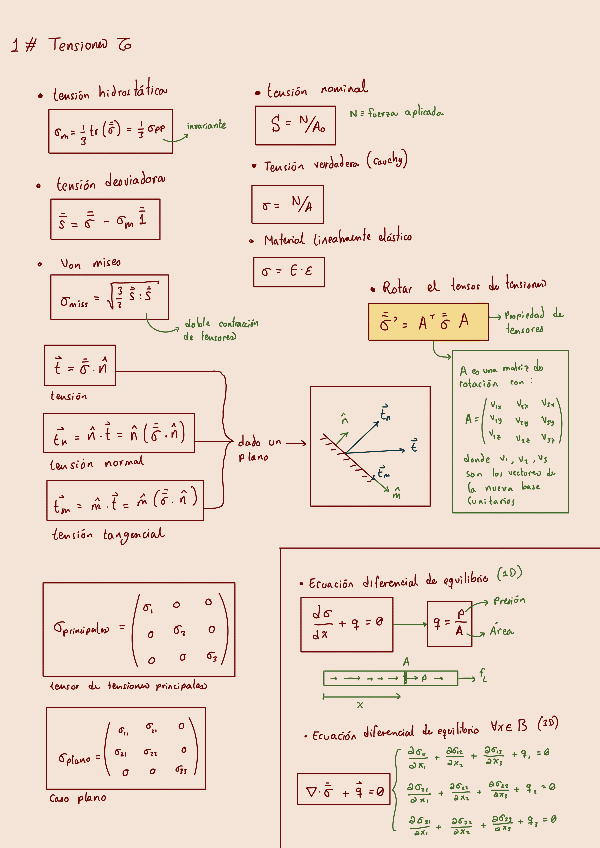 1# Tensiones σ
• tensión hidrostática
σm = 1/3 tr(σ̿) = 1/3 σpp
invariante
• tensión desviadora
s̿ = σ̿ - σm 1̿
• Von mises
σmiss = √(3/2 s̿ : s̿)
doble contracción
de tensores
• tensión nominal
S = N/A₀
N = fuerza aplicada
• Tensión verdadera (Cauchy)
σ = N/A
• Material linealmente elástico
σ = E·ε
• Rotar el tensor de tensiones
σ̿' = Aᵀ σ̿ A
Propiedad de
tensores
A es una matriz de
rotación con:
A = (v1x v2x v3x
v1y v2y v3y
v1z v2z v3z)
donde v1, v2, v3
son los vectores de
la nueva base
(unitarios
t⃗ = σ̿ · n̂
tensión
t⃗n = n̂ · t⃗ = n̂ (σ̿ · n̂)
tensión normal
t⃗m = m̂ · t⃗ = m̂ (σ̿ · n̂)
tensión tangencial
dado un
plano
n̂
t⃗n
t⃗
t⃗m
m̂
σprincipales = (σ1 0 0
0 σ2 0
0 0 σ3)
tensor de tensiones principales
σplano = (σ11 σ21 0
σ21 σ22 0
0 0 σ33)
Caso plano
• Ecuación diferencial de equilibrio (1D)
dσ/dx + q = 0
q = P/A
Presión
Área
A
P
fL
x
• Ecuación diferencial de equilibrio ∀x∈B (3D)
∇·σ̿ + q⃗ = 0
∂σ11/∂x1 + ∂σ12/∂x2 + ∂σ13/∂x3 + q1 = 0
∂σ21/∂x1 + ∂σ22/∂x2 + ∂σ23/∂x3 + q2 = 0
∂σ31/∂x1 + ∂σ32/∂x2 + ∂σ33/∂x3 + q3 = 0